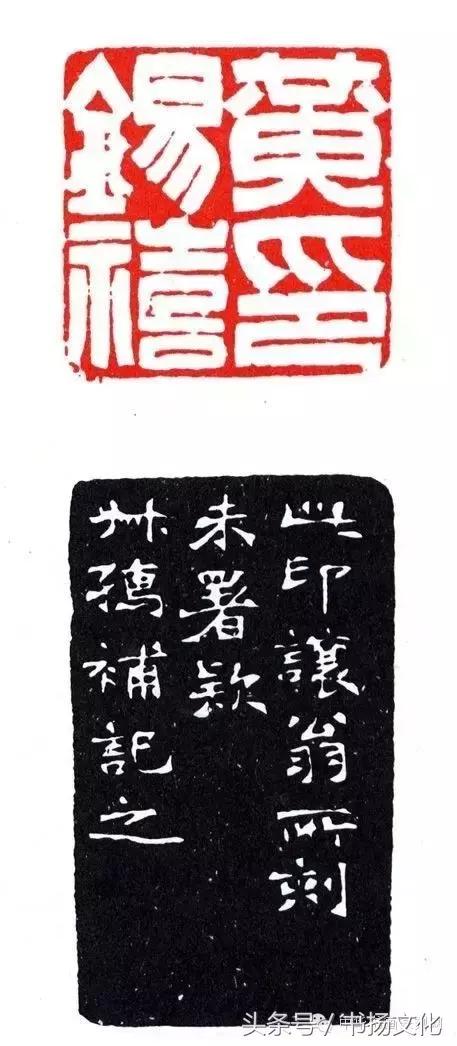 黃印
錫禧
此印讓翁所刻
未署款
艸補記之
头条号 / 书扬文化